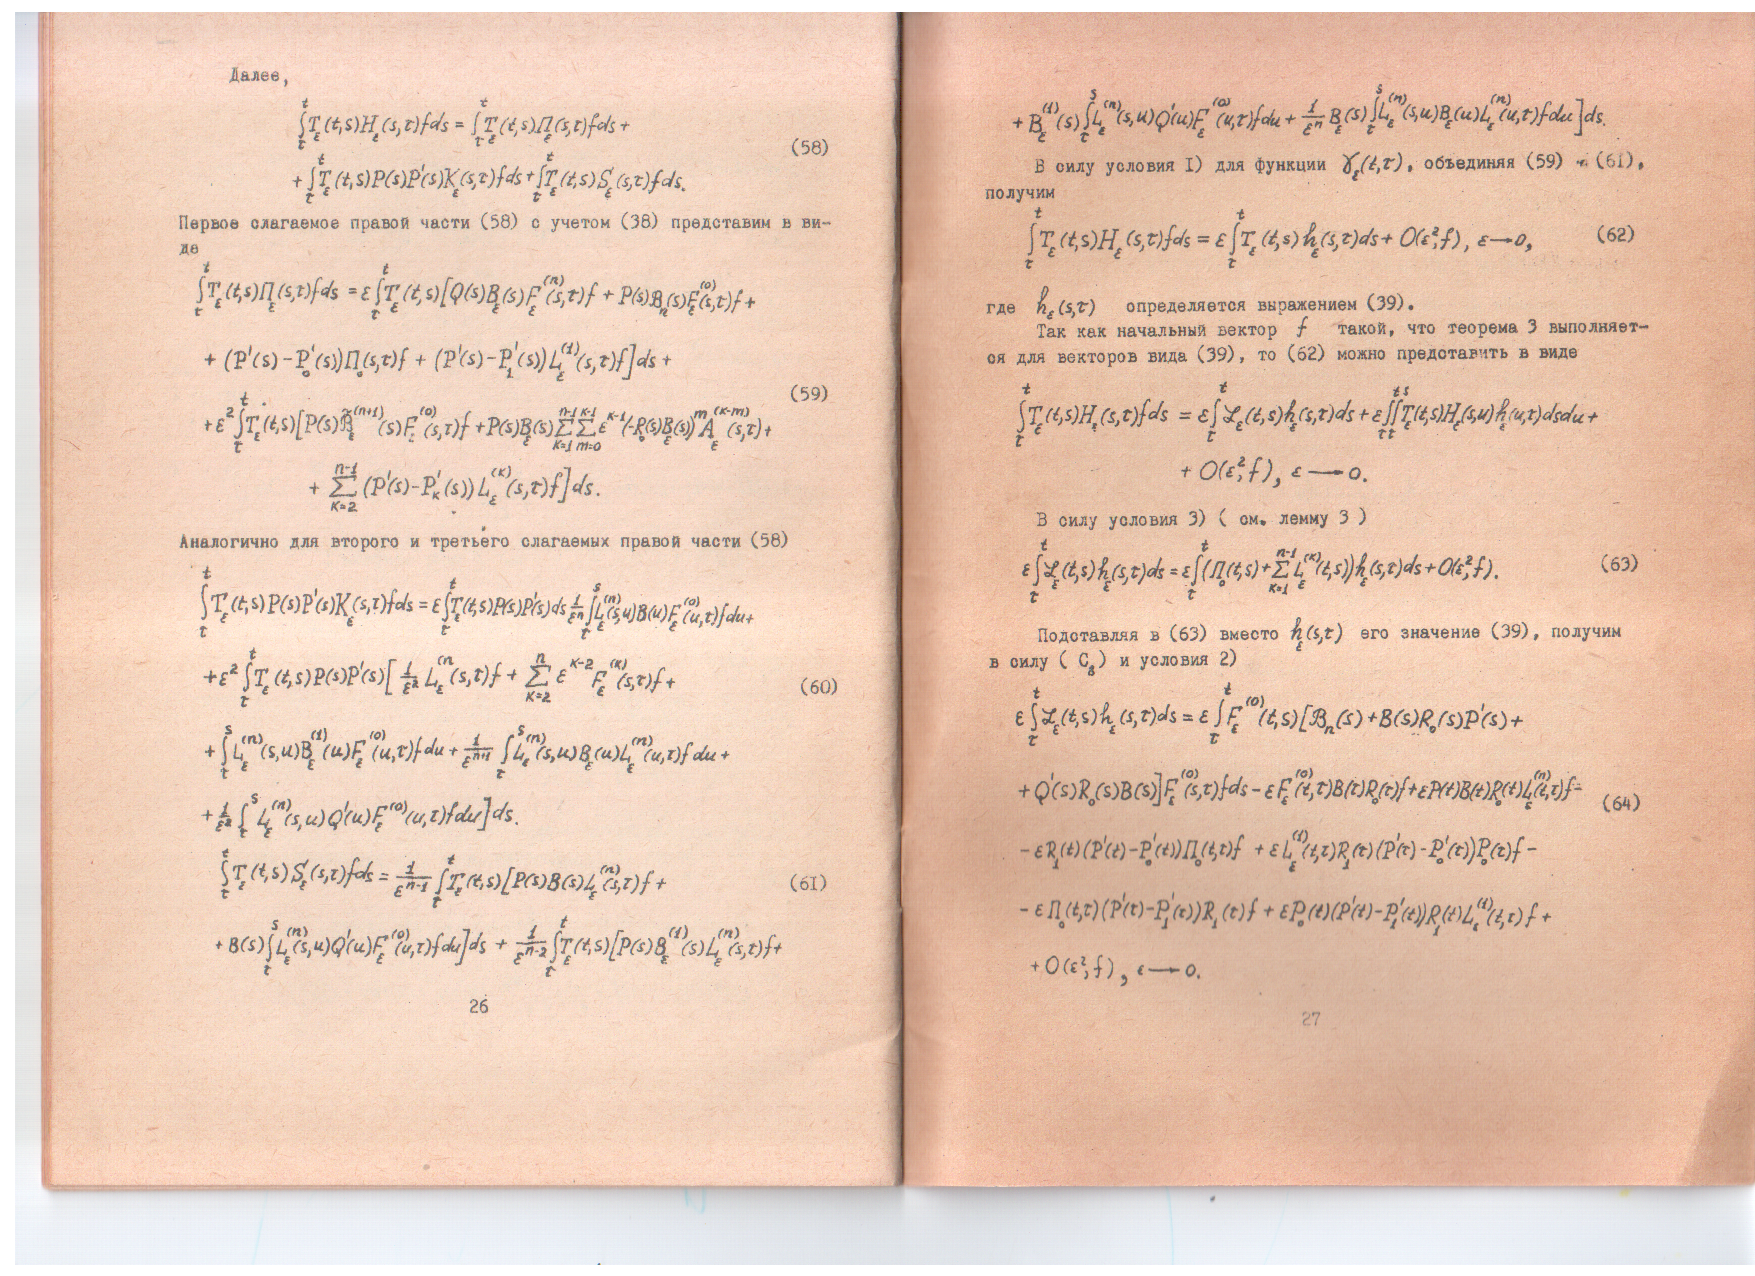 Далее,
∫_τ^t T_ε(t,s)H_ε(s,τ)fds = ∫_τ^t T_ε(t,s)Π_ε(s,τ)fds +
(58)
+ ∫_τ^t T_ε(t,s)P(s)P'(s)K_ε(s,τ)fds + ∫_τ^t T_ε(t,s)S_ε(s,τ)fds.
Первое слагаемое правой части (58) с учетом (38) представим в ви-
де
∫_τ^t T_ε(t,s)Π_ε(s,τ)fds = ε∫_τ^t T_ε(t,s)[Q(s)B_ε(s)F_ε^(n)(s,τ)f + P(s)ℬ_n(s)F_ε^(0)(s,τ)f +
+ (P'(s) - P'_0(s))Π_0(s,τ)f + (P'(s) - P'_1(s))L_ε^(1)(s,τ)f]ds +
(59)
+ ε^2∫_τ^t T_ε(t,s)[P(s)B̃_ε^(n+1)(s)F_ε^(0)(s,τ)f + P(s)B_ε(s)Σ_{k=1}^{n-1}Σ_{m=0}^{k-1} ε^{k-1}(-R_0(s)B_ε(s))^m A_ε^(k-m)(s,τ) +
+ Σ_{k=2}^{n-1} (P'(s) - P'_k(s))L_ε^(k)(s,τ)f]ds.
Аналогично для второго и третьего слагаемых правой части (58)
∫_τ^t T_ε(t,s)P(s)P'(s)K_ε(s,τ)fds = ε∫_τ^t T_ε(t,s)P(s)P'(s)ds 1/ε^n ∫_τ^s L_ε^(n)(s,u)B(u)F_ε^(0)(u,τ)fdu +
+ ε^2∫_τ^t T_ε(t,s)P(s)P'(s)[1/ε^2 L_ε^(n)(s,τ)f + Σ_{k=2}^n ε^{k-2}F_ε^(k)(s,τ)f +
(60)
+ ∫_τ^s L_ε^(n)(s,u)B_ε^(1)(u)F_ε^(0)(u,τ)fdu + 1/ε^{n+1} ∫_τ^s L_ε^(n)(s,u)B_ε(u)L_ε^(n)(u,τ)fdu +
+ 1/ε^2 ∫_τ^s L_ε^(n)(s,u)Q'(u)F_ε^(0)(u,τ)fdu]ds.
∫_τ^t T_ε(t,s)S_ε(s,τ)fds = 1/ε^{n-1} ∫_τ^t T_ε(t,s)[P(s)B(s)L_ε^(n)(s,τ)f +
(61)
+ B(s)∫_τ^s L_ε^(n)(s,u)Q'(u)F_ε^(0)(u,τ)fdu]ds + 1/ε^{n-2} ∫_τ^t T_ε(t,s)[P(s)B_ε^(1)(s)L_ε^(n)(s,τ)f +
26
+ B_ε^(1)(s)∫_τ^s L_ε^(n)(s,u)Q'(u)F_ε^(0)(u,τ)fdu + 1/ε^n B_ε(s)∫_τ^s L_ε^(n)(s,u)B_ε(u)L_ε^(n)(u,τ)fdu]ds.
В силу условия I) для функции γ_ε(t,τ), объединяя (59) - (61),
получим
∫_τ^t T_ε(t,s)H_ε(s,τ)fds = ε∫_τ^t T_ε(t,s)h_ε(s,τ)ds + O(ε^2;f), ε→0,
(62)
где h_ε(s,τ) определяется выражением (39).
Так как начальный вектор f такой, что теорема 3 выполняет-
ся для векторов вида (39), то (62) можно представить в виде
∫_τ^t T_ε(t,s)H_ε(s,τ)fds = ε∫_τ^t ℒ_ε(t,s)h_ε(s,τ)ds + ε∫_τ^t∫_τ^s T_ε(t,s)H_ε(s,u)h_ε(u,τ)dsdu +
+ O(ε^2;f), ε→0.
В силу условия 3) ( см. лемму 3 )
ε∫_τ^t ℒ_ε(t,s)h_ε(s,τ)ds = ε∫_τ^t (Π_0(t,s) + Σ_{k=1}^{n-1} L_ε^(k)(t,s))h_ε(s,τ)ds + O(ε^2;f).
(63)
Подставляя в (63) вместо h_ε(s,τ) его значение (39), получим
в силу ( C_8) и условия 2)
ε∫_τ^t ℒ_ε(t,s)h_ε(s,τ)ds = ε∫_τ^t F_ε^(0)(t,s)[ℬ_n(s) + B(s)R_0(s)P'(s) +
+ Q'(s)R_0(s)B(s)]F_ε^(0)(s,τ)fds - εF_ε^(0)(t,τ)B(τ)R_0(τ)f + εP(t)B(t)R_0(t)L_ε^(n)(t,τ)f -
(64)
- εR_1(t)(P'(t) - P'_0(t))Π_0(t,τ)f + εL_ε^(1)(t,τ)R_1(τ)(P'(τ) - P'_0(τ))P_0(τ)f -
- εΠ_0(t,τ)(P'(τ) - P'_1(τ))R_1(τ)f + εP_0(t)(P'(t) - P'_1(t))R_1(t)L_ε^(1)(t,τ)f +
+ O(ε^2;f), ε→0.
27